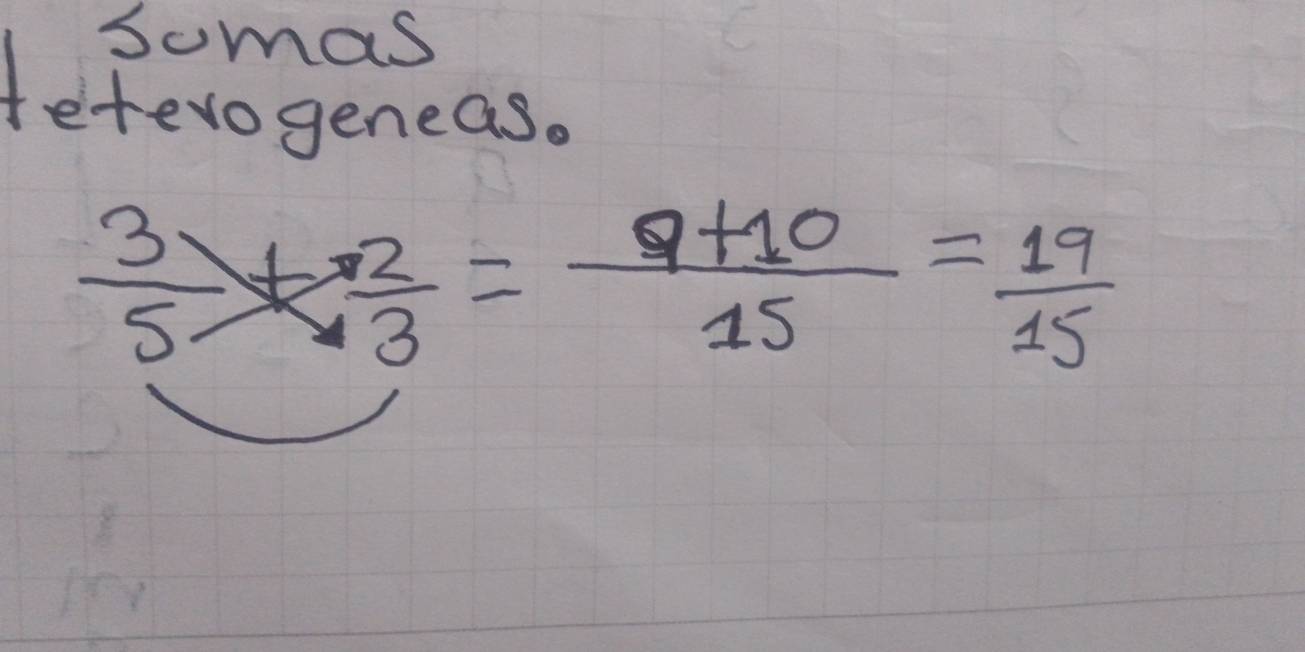 Sumas
Heterogeneas.
3/5 + 2/3 = 9+10/15 = 19/15